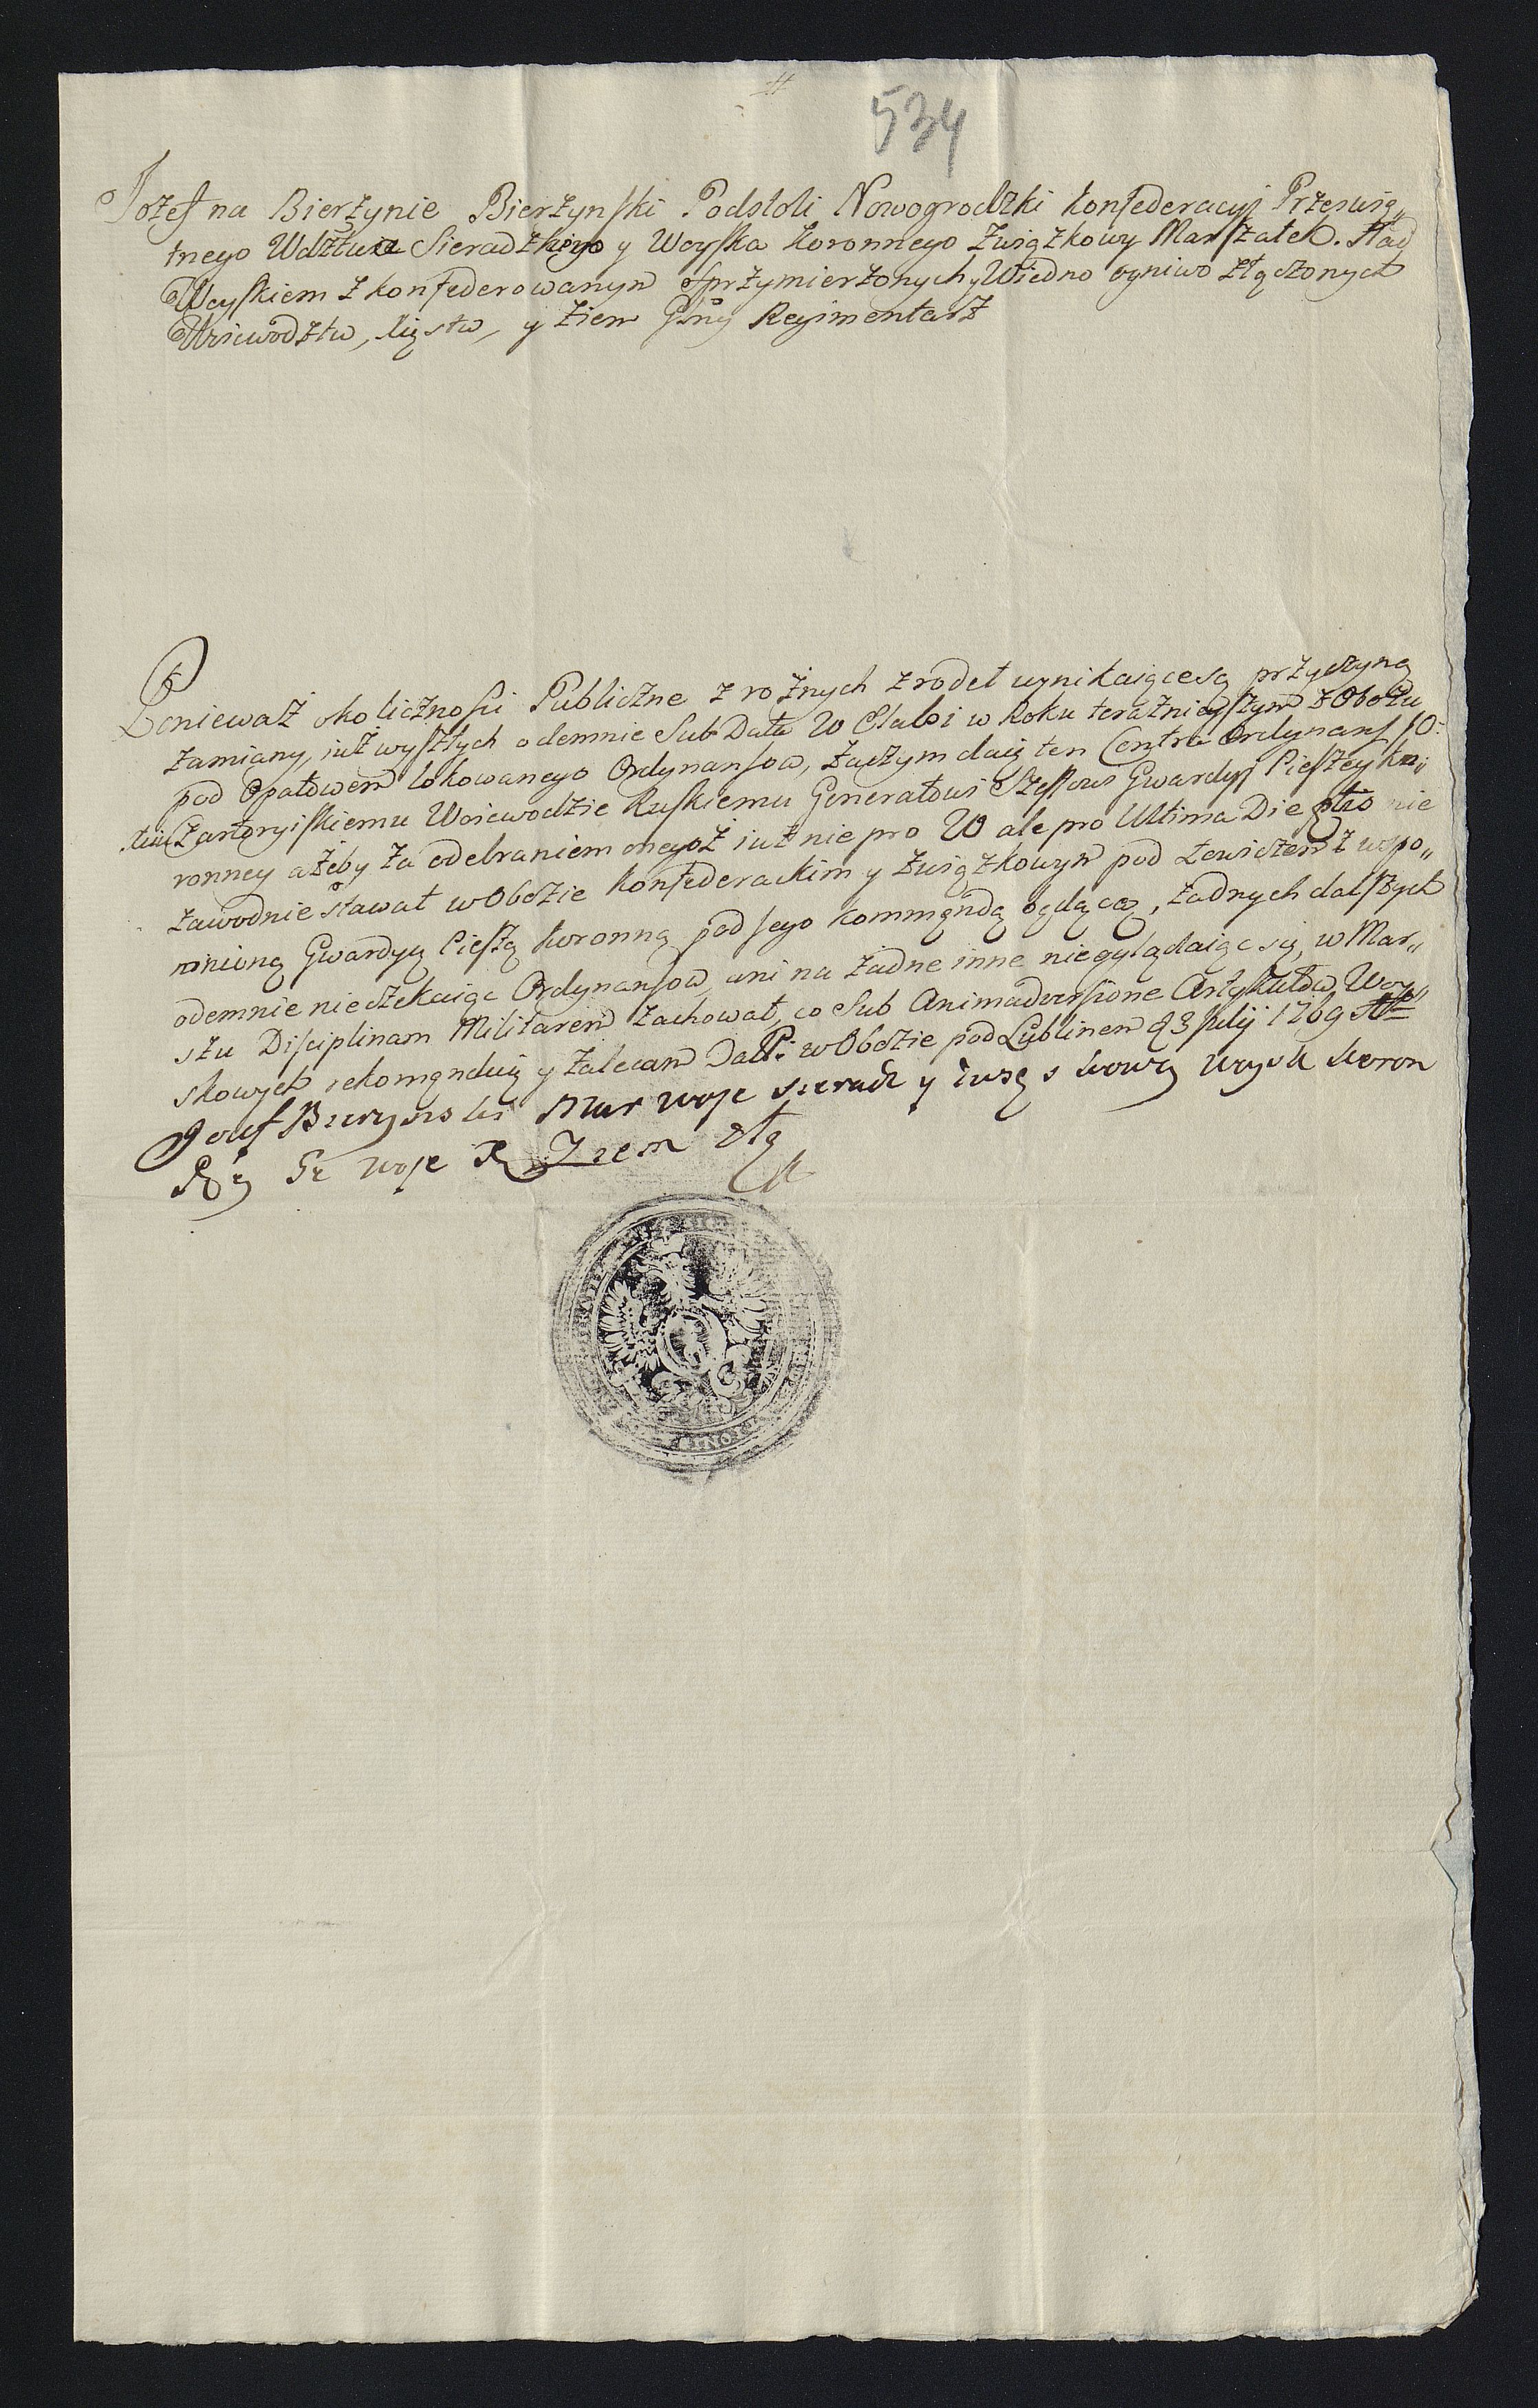 534
Jozef na Bierzynie Bierzynski Podstoli Nowogrodzki konfederacyi Przeswię„
tnego Wdztwa Sieradzkiego y Woyska koronnego Związkowy Marszałek. Nad
Woyskiem Zkonfederowanym Sprzymierzonych y Wiedno ogniwo złączonych
Woiewodztw, Xięstw, y Ziem Głny Regimentarz
Poniewaz okoliczności Publiczne z rożnych zrodeł wynikaiące są przyczyną
zamiany, iuż wyszłych odemnie Sub Data 20 Maii w Roku teraznieyszym z Obozu
pod Opatowem lokowanego Ordynansow, zaczym daię ten Contra Ordynans JO:
Xciu Czartoryiskiemu Woiewodzie Ruskiemu Generałowi Szeffowi Gwardyi Pieszey ko„
ronney ażeby za odebraniem onegoż iuż nie pro 20 ale pro Ultima Die nie
zawodnie stawał w Obozie konfederackim y Związkowym pod Łowiczem z wspo„
mnioną Gwardyą Pieszą koronną pod jego kommendą będącą, żadnych dalszych
odemnie nieczekaiąc Ordynansow, ani na żadne inne nieoglądaiąc się, w Mar„
szu Disciplinam Militarem zachował, co Sub Animadversione Artykułow Woy„
skowych rekomenduię y zalecam Datt: w Obozie pod Lublinem d 3 Julij 1769 Ao
Jozef Bierzynski Mar woje sieradz y związkowy woysk koron
woje Ziem